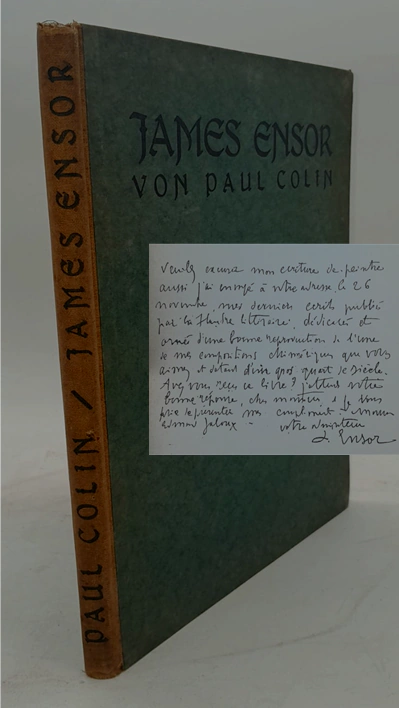 JAMES ENSOR
VON PAUL COLIN
PAUL COLIN / JAMES ENSOR
Veuillez excuser mon écriture de peintre
aussi j'ai envoyé à votre adresse le 26
novembre, mes derniers écrits publiés
par la Flandre littéraire, dédicacés et
ornés d'une bonne reproduction de l'une
de mes compositions chimériques que vous
aimez et datant d'un gros quart de siècle.
Avez vous reçu ce livre? j'attends votre
bonne réponse, cher monsieur, et je vous
prie de présenter mes compliments à Monsieur
Edmond Jaloux -
votre admirateur
J. Ensor